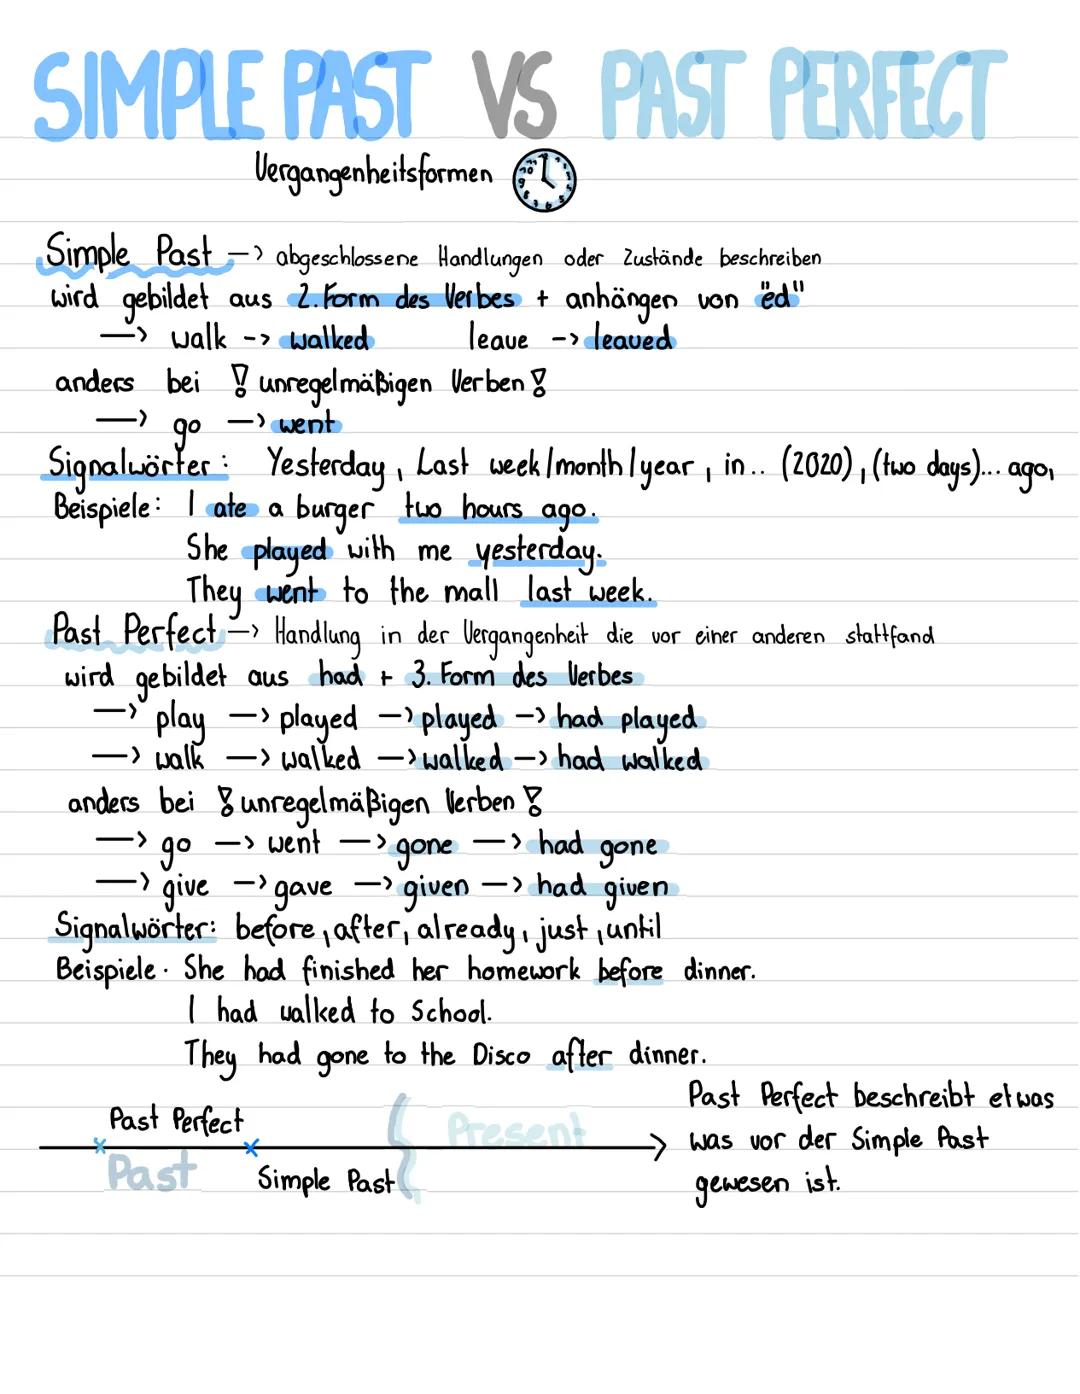 SIMPLE PAST VS PAST PERFECT
Vergangenheitsformen
Simple Past —> abgeschlossene Handlungen oder Zustände beschreiben
wird gebildet aus 2. Form des Verbes + anhängen von "ed"
—> walk -> walked leave -> leaved
anders bei ! unregelmäßigen Verben !
—> go —> went
Signalwörter: Yesterday, Last week/month/year, in.. (2020), (two days)... ago,
Beispiele: I ate a burger two hours ago.
She played with me yesterday.
They went to the mall last week.
Past Perfect —> Handlung in der Vergangenheit die vor einer anderen stattfand
wird gebildet aus had + 3. Form des Verbes
—> play —> played —> played —> had played
—> walk —> walked —> walked —> had walked
anders bei ! unregelmäßigen Verben !
—> go —> went —> gone —> had gone
—> give —> gave —> given —> had given
Signalwörter: before, after, already, just, until
Beispiele: She had finished her homework before dinner.
I had walked to School.
They had gone to the Disco after dinner.
Past Perfect
Past
Simple Past
Present
Past Perfect beschreibt etwas
was vor der Simple Past
gewesen ist.